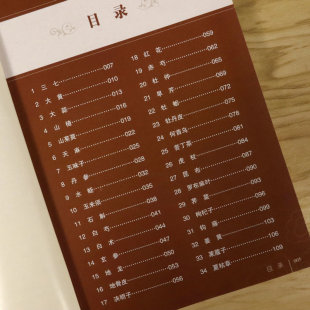 目录
1 三七 007
2 大黄 010
3 大蒜 013
4 山楂 016
5 山茱萸 019
6 天麻 022
7 五味子 025
8 丹参 028
9 水蛭 032
10 玉米须 035
11 石斛 038
12 白芍 041
13 白术 044
14 玄参 047
15 地龙 050
16 地骨皮 053
17 决明子 056
18 红花 059
19 赤芍 062
20 杜仲 065
21 旱芹 069
22 牡蛎 072
23 牡丹皮 075
24 何首乌 078
25 苦丁茶 081
26 虎杖 084
27 昆布 087
28 罗布麻叶 090
29 荠菜 093
30 枸杞子 096
31 钩藤 099
32 姜黄 103
33 莱菔子 106
34 夏枯草 109
目录